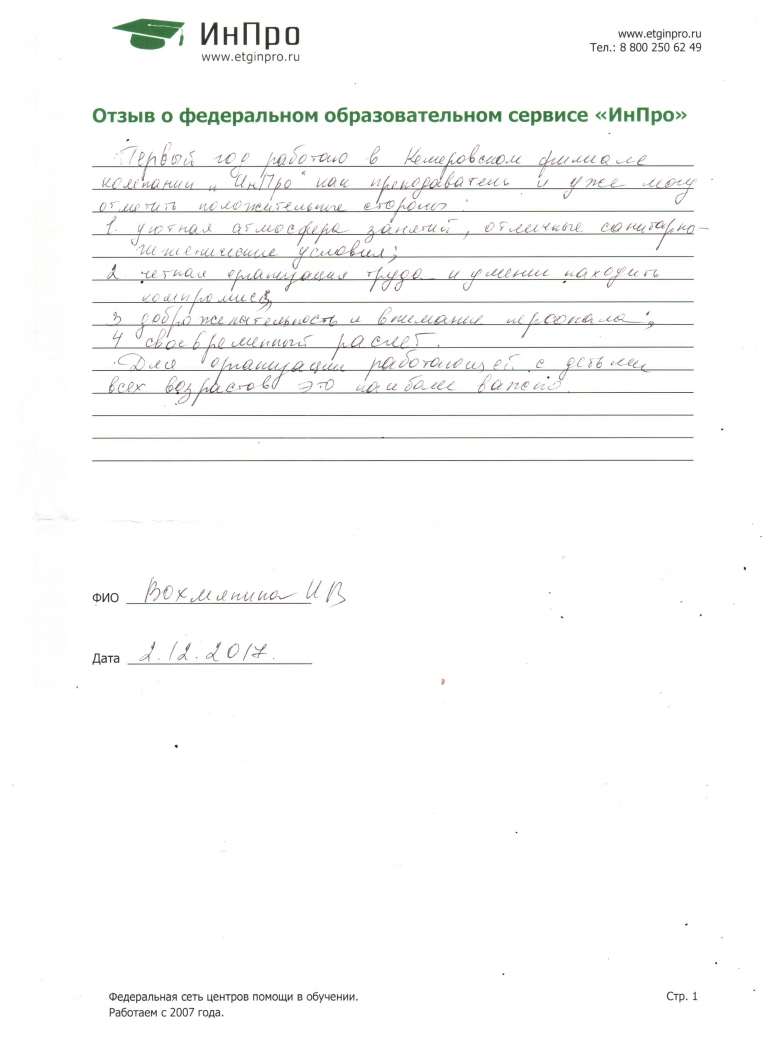 ИнПро
www.etginpro.ru
www.etginpro.ru
Тел.: 8 800 250 62 49
Отзыв о федеральном образовательном сервисе «ИнПро»
Первый год работаю в Кемеровском филиале
компании „ИнПро" как преподаватель и уже могу
отметить положительные стороны:
1. уютная атмосфера занятий, отличные санитарно-
гигиенические условия;
2 четкая организация труда и умении находить
компромисс;
3 доброжелательность и внимание персонала;
4 своевременный расчет.
Для организации работающей с детьми
всех возрастов это наиболее важно.
ФИО Вохмянина И В
Дата 2.12.2017.
Федеральная сеть центров помощи в обучении.
Работаем с 2007 года.
Стр. 1